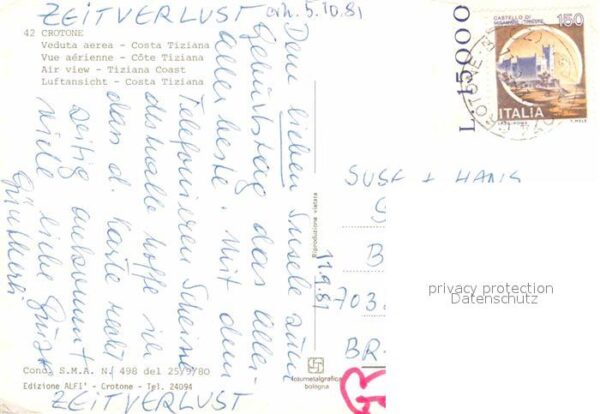 ZEITVERLUST
erh. 5.10.81
42 CROTONE
Veduta aerea - Costa Tiziana
Vue aérienne - Côte Tiziana
Air view - Tiziana Coast
Luftansicht - Costa Tiziana
Dem lieben Susele zum
Geburtstag das aller-
allerbeste. Mit dem
Telefonieren Scheine
deshalb hoffe ich
das d. Karte recht
zeitig ankommt
viele liebe Grüße
Cond. S.M.A. N. 498 del 25/9/80
Edizione ALFI' - Crotone - Tel. 24094
ZEITVERLUST
Riproduzione vietata
rotalmetalgrafica
bologna
L. 15000
CASTELLO DI
MIRAMARE - TRIESTE
150
ITALIA
SUSE + HANS
S
B
11.9.81
703
BR-
privacy protection
Datenschutz